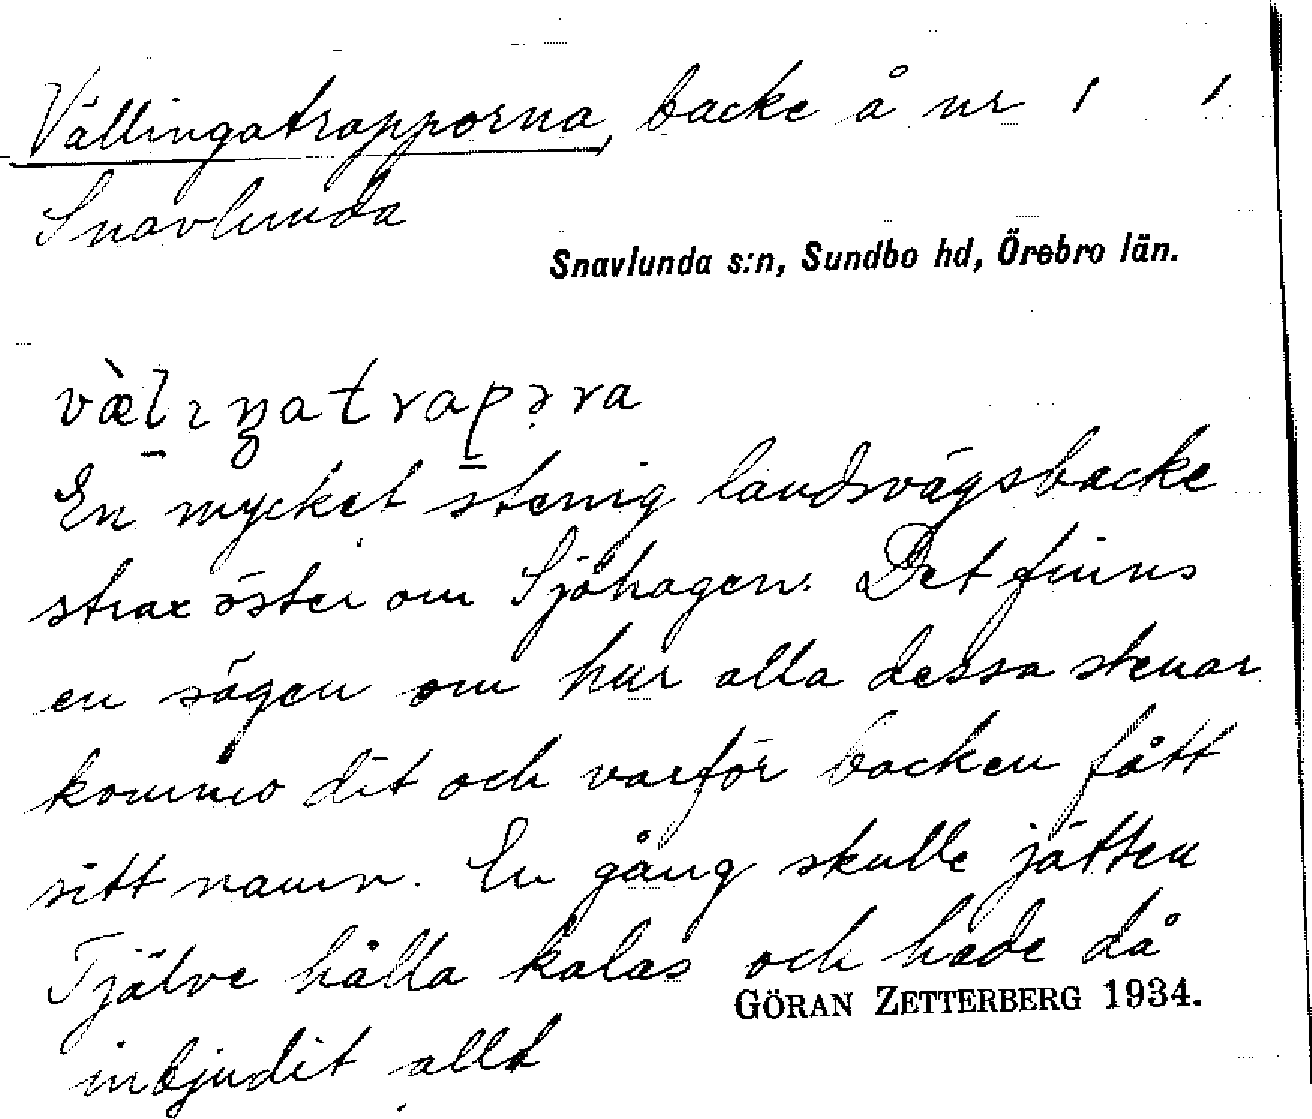 Vällingatrapporna, backe å nr 1 1
Snavlunda
Snavlunda s:n, Sundbo hd, Örebro län.
væ̀lıŋatrapəra
En mycket stenig landsvägsbacke
strax öster om Sjöhagen. Det finns
en sägen om hur alla dessa stenar
kommo dit och varför backen fått
sitt namn. En gång skulle jätten
Tjälve hålla kalas och hade då
GÖRAN ZETTERBERG 1934.
inbjudit allt